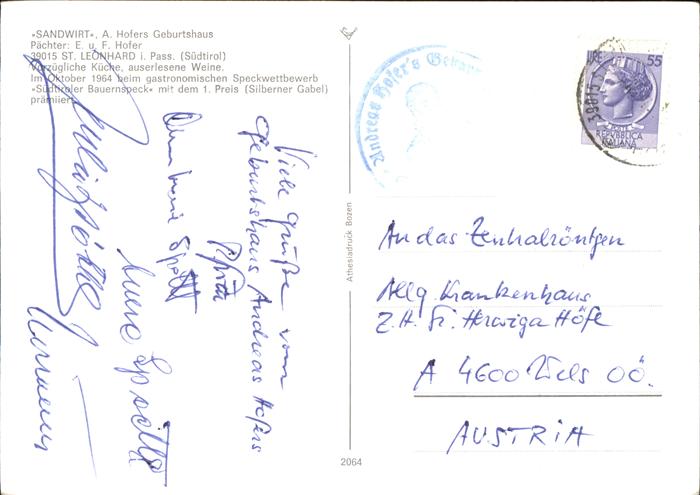 »SANDWIRT«, A. Hofers Geburtshaus
Pächter: E. u. F. Hofer
39015 ST. LEONHARD i. Pass. (Südtirol)
Vorzügliche Küche, auserlesene Weine.
Im Oktober 1964 beim gastronomischen Speckwettbewerb
»Südtiroler Bauernspeck« mit dem 1. Preis (Silberner Gabel)
prämiiert
Viele Grüße vom
Geburtshaus Andreas Hofers
Hermann
Athesiadruck Bozen
2064
Andreas Hofer's
LIRE 55
REPVBBLICA
ITALIANA
An das Zentralröntgen
Allg. Krankenhaus
Z.H. Fr. Herwiga Höfl
A 4600 Wels OÖ.
AUSTRIA